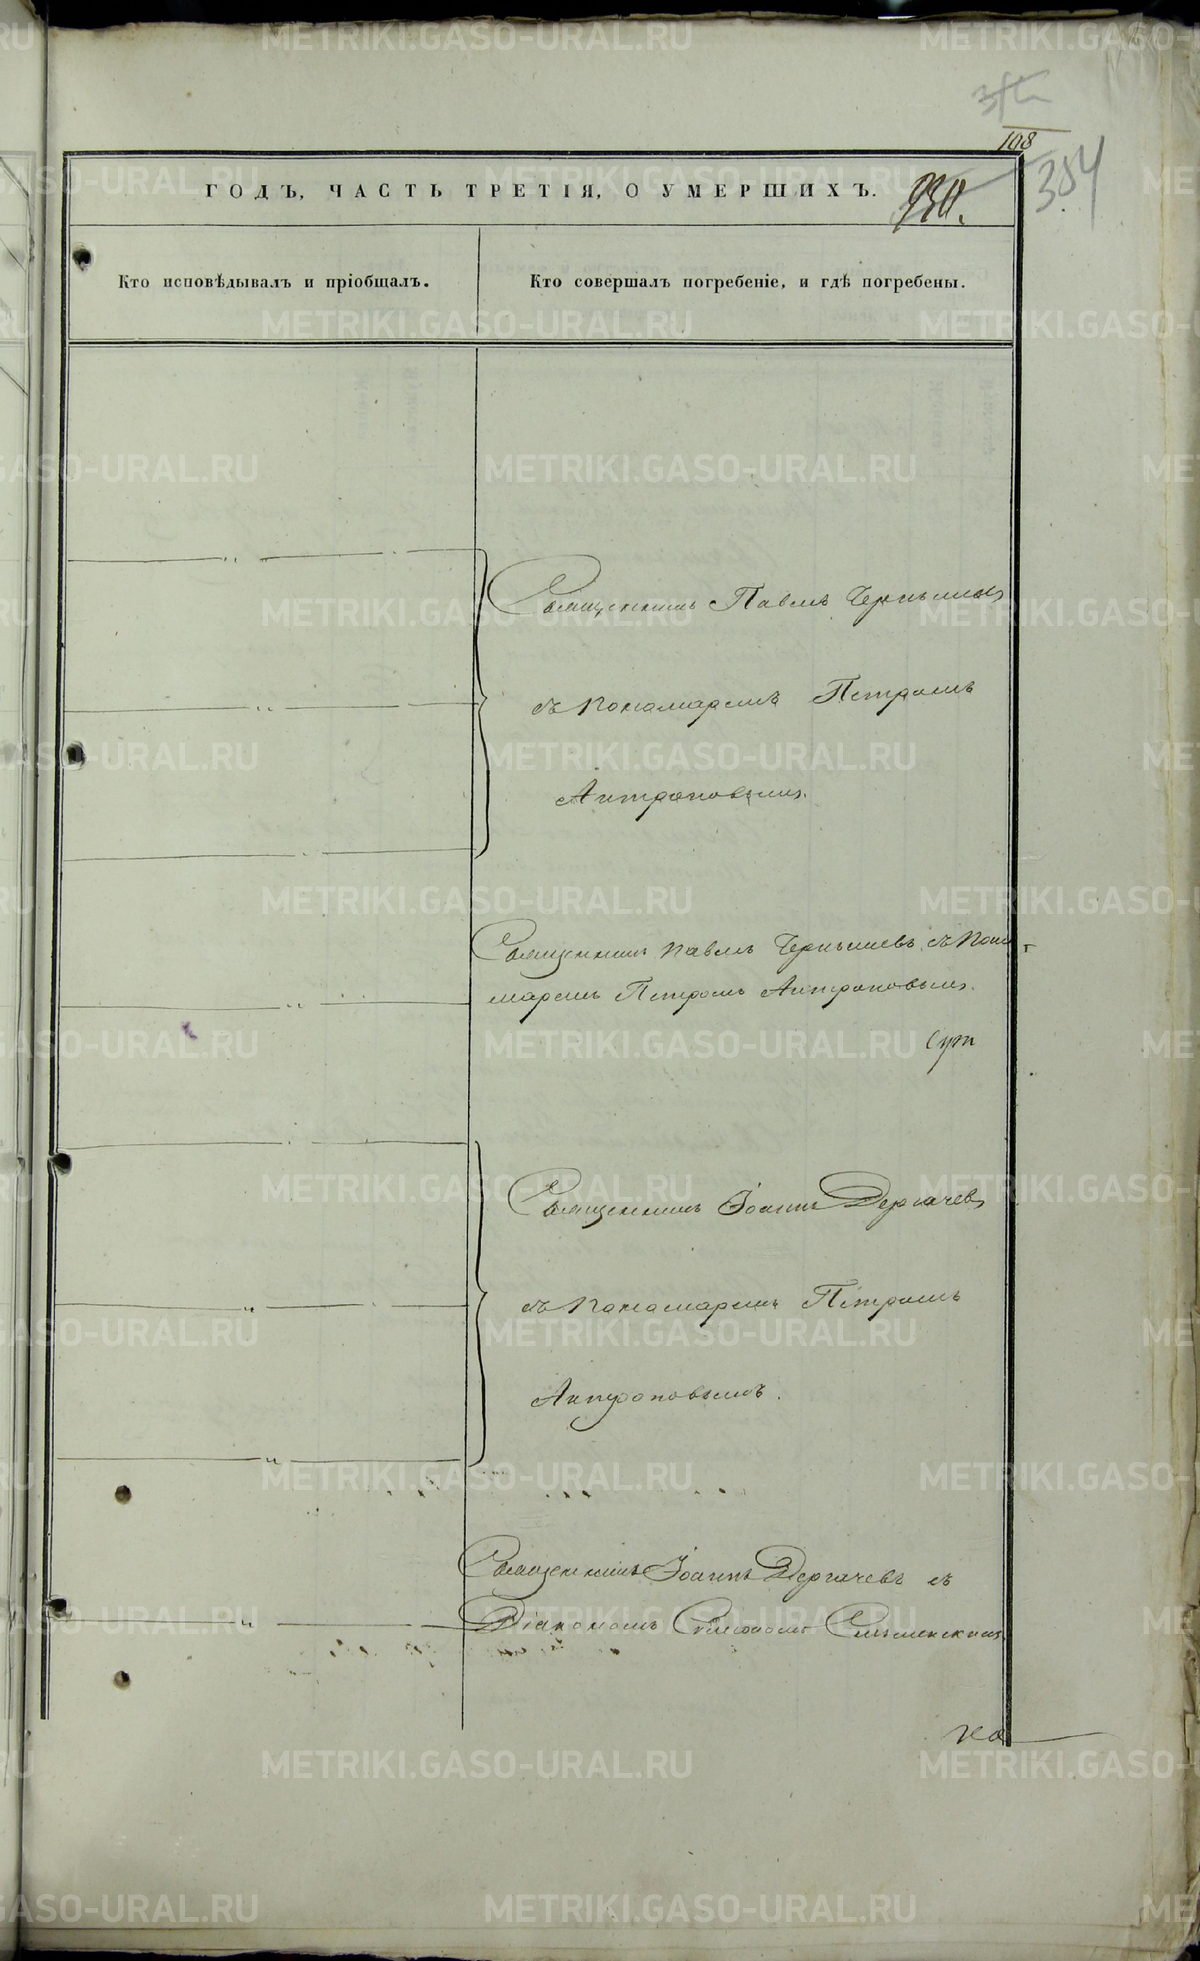 108
384
ГОДЪ, ЧАСТЬ ТРЕТІЯ, О УМЕРШИХЪ.
Кто исповѣдывалъ и пріобщалъ.
Кто совершалъ погребеніе, и гдѣ погребены.
Священникъ Павелъ Чернышевъ
съ Пономаремъ Петромъ
Антроповымъ.
Священникъ Павелъ Чернышевъ съ Поно-
маремъ Петромъ Антроповымъ.
Священникъ Іоаннъ Дергачевъ
съ Пономаремъ Петромъ
Антроповымъ.
Священникъ Іоаннъ Дергачевъ съ
Діакономъ
на
METRIKI.GASO-URAL.RU